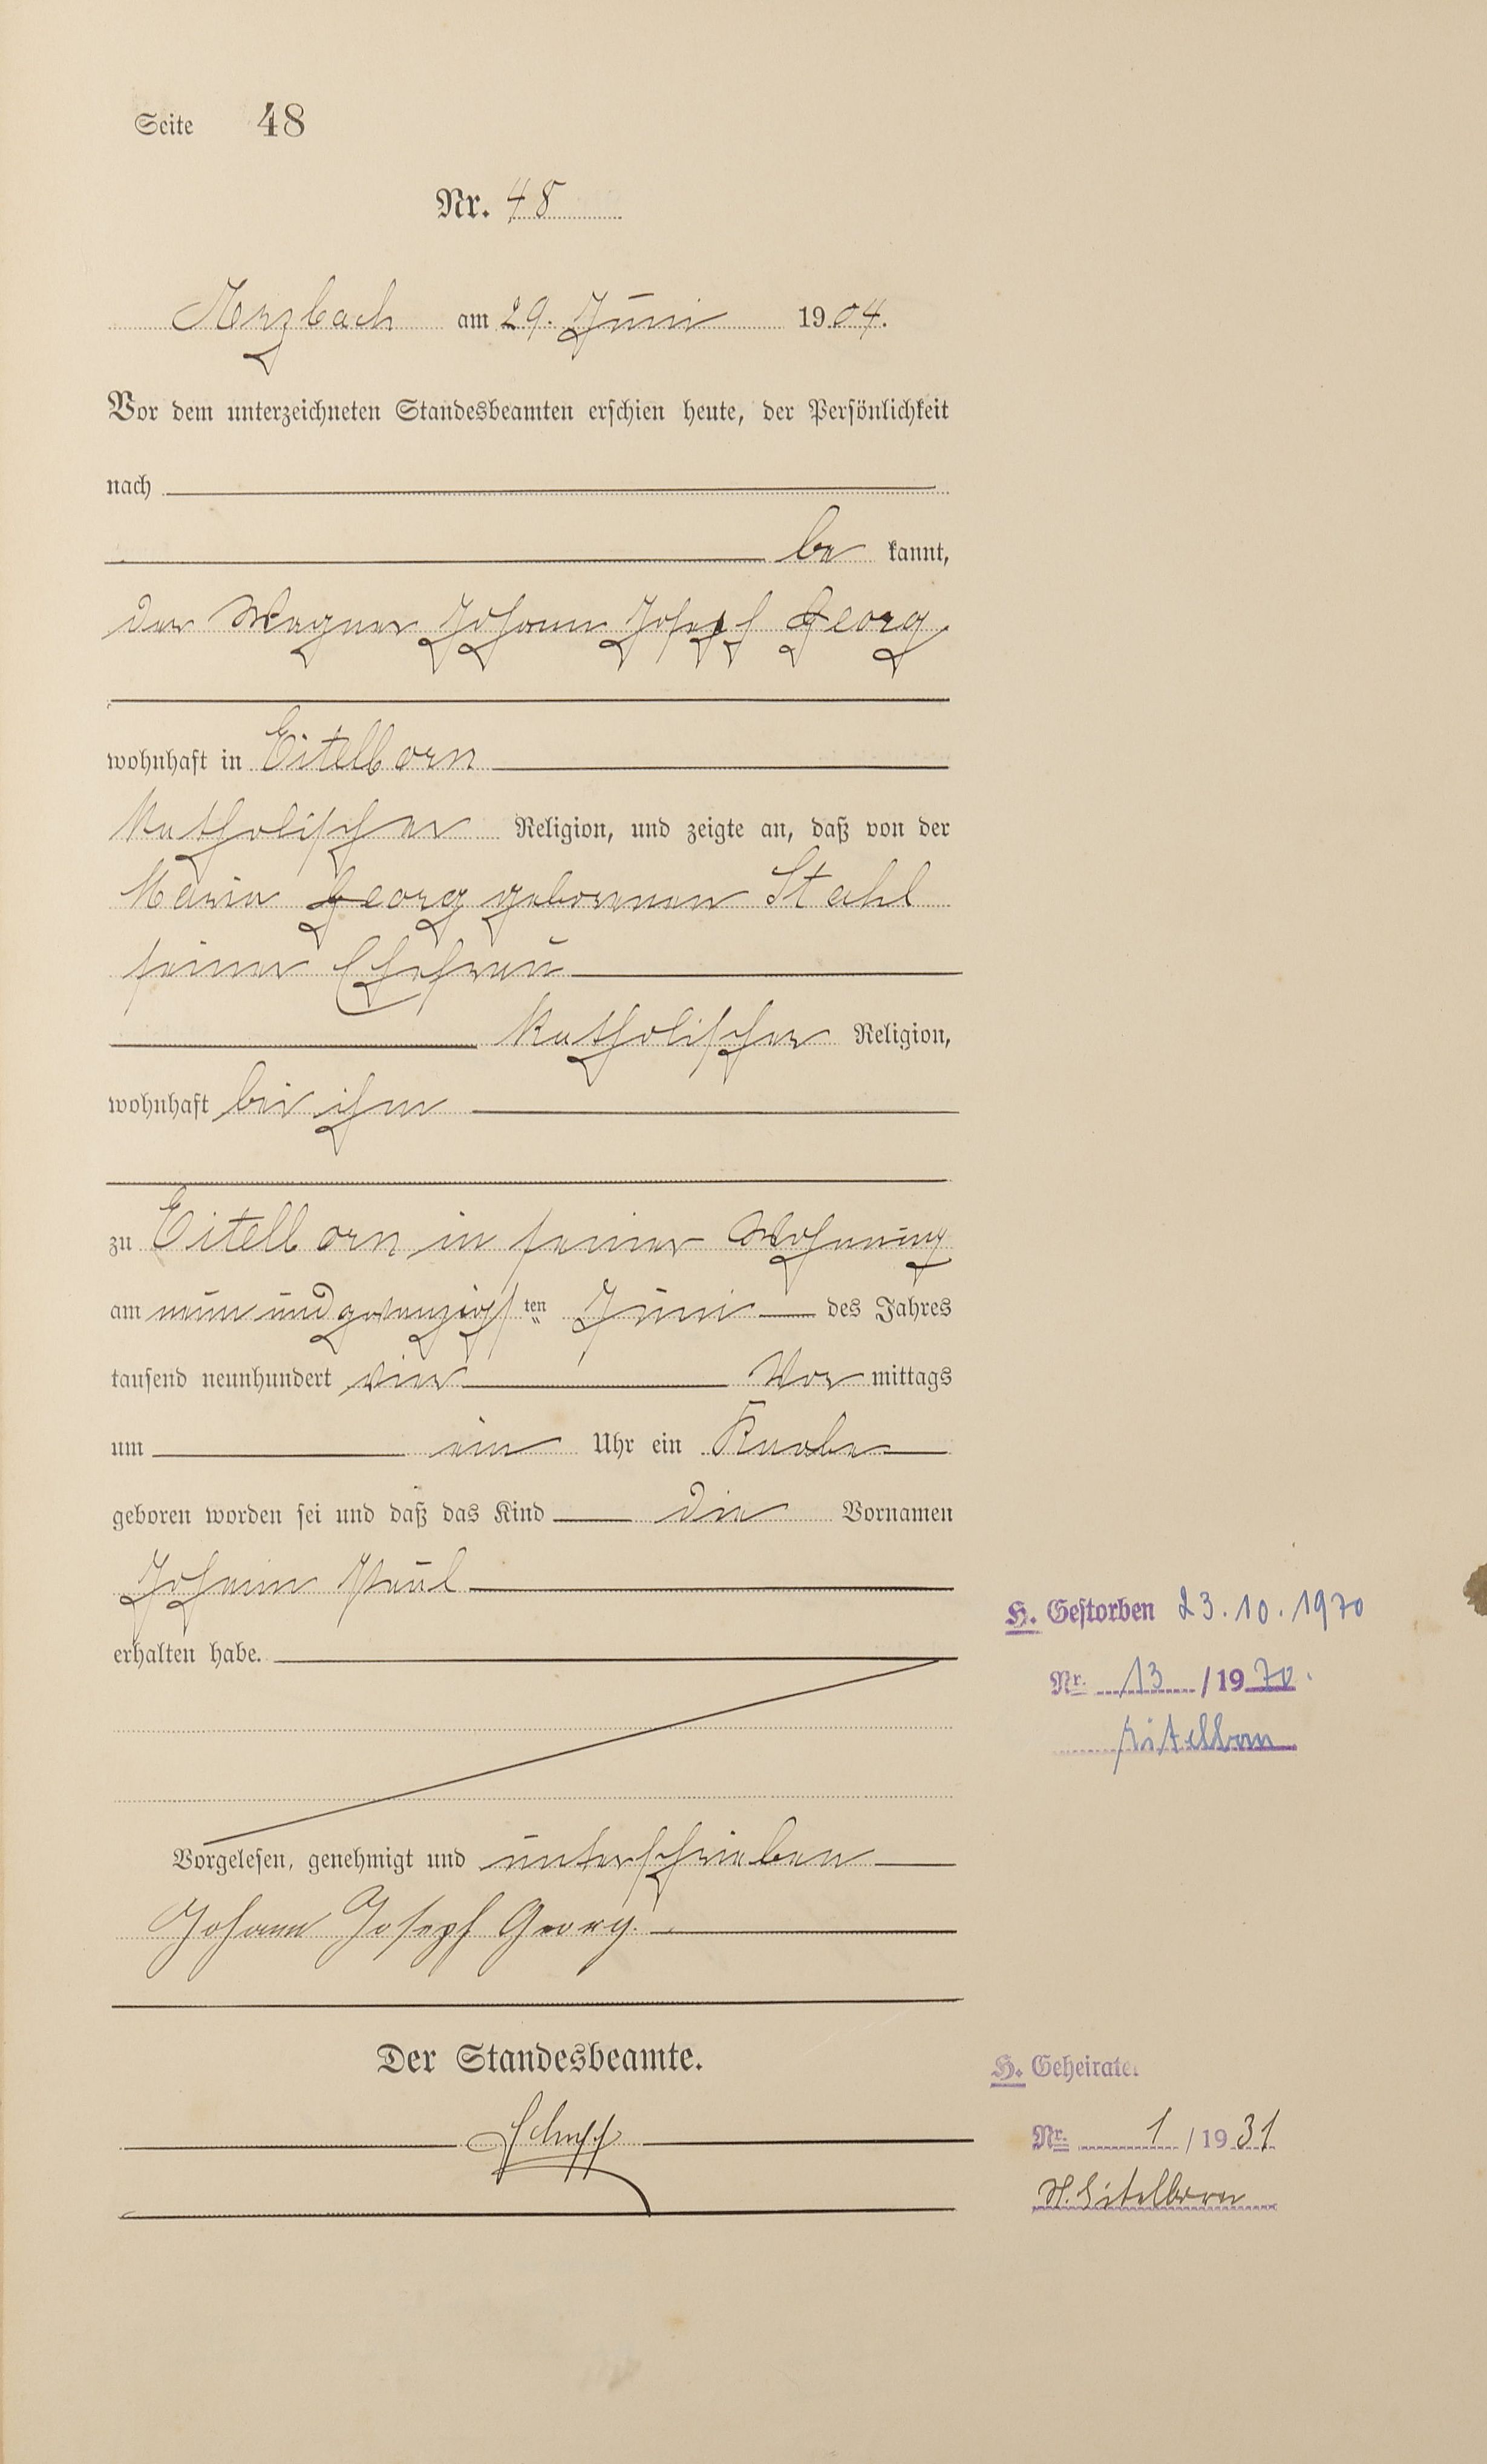 Seite 48
Nr. 48
Arzbach am 29. Juni 1904.
Vor dem unterzeichneten Standesbeamten erschien heute, der Persönlichkeit
nach
be kannt,
der Wagner Johann Josef Georg
wohnhaft in Eitelborn
katholischer Religion, und zeigte an, daß von der
Maria Georg gebornen Stahl
seiner Ehefrau
katholischer Religion,
wohnhaft bei ihm
zu Eitelborn in seiner Wohnung
am neun und zwanzigsten Juni des Jahres
tausend neunhundert vier Vor mittags
um ein Uhr ein Knabe
geboren worden sei und daß das Kind die Vornamen
Johann Paul
erhalten habe.
H. Gestorben 23.10.1970
Nr. 13 / 1970.
Eitelborn
Vorgelesen, genehmigt und unterschrieben
Johann Joseph Georg.
Der Standesbeamte.
H. Geheiratet
Nr. 1 / 1931
St. Eitelborn